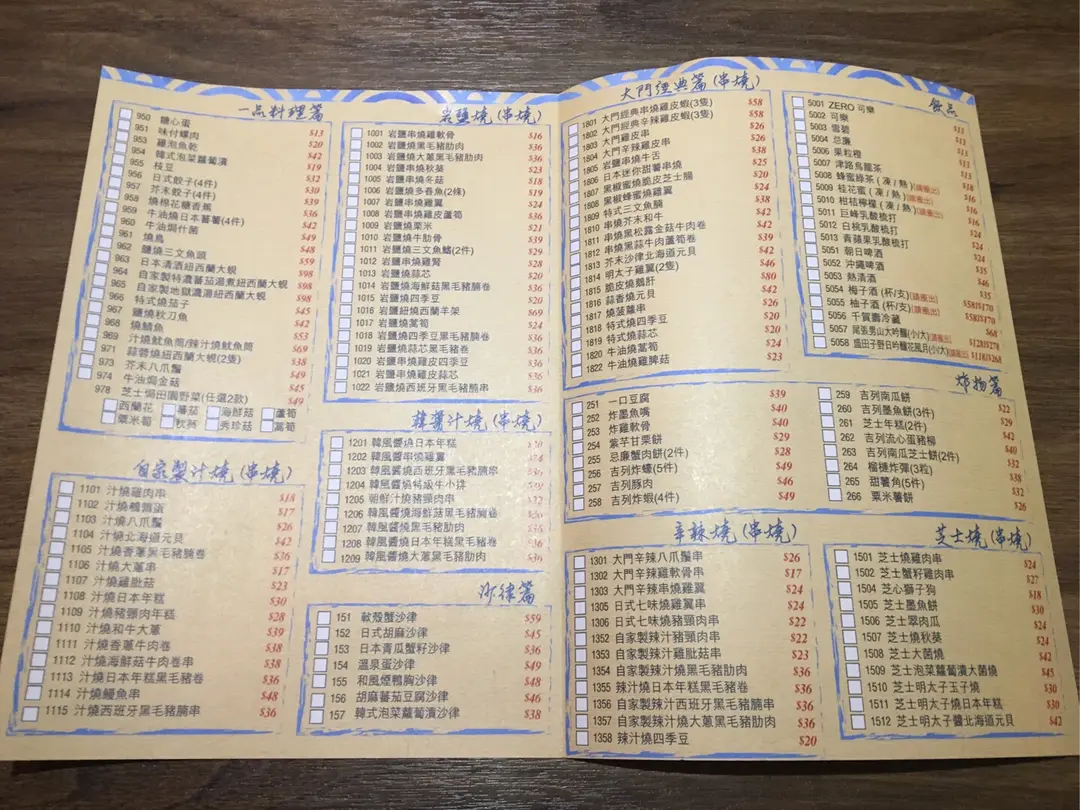 一品料理篇
950 糖心蛋 $13
951 味付螺肉 $20
953 雞泡魚乾 $42
954 韓式泡菜蘿蔔漬 $19
955 枝豆 $32
956 日式餃子(4件) $30
957 芥末餃子(4件) $39
958 燒棉花糖香蕉 $36
959 牛油燒日本蕃薯(4件) $42
960 牛油焗什菌 $49
961 燒鳥 $48
962 鹽燒三文魚頭 $59
963 日本清酒紐西蘭大蜆 $98
964 自家製特濃蕃茄湯煮紐西蘭大蜆 $98
965 自家製地獄濃湯紐西蘭大蜆 $98
966 特式燒茄子 $45
967 鹽燒秋刀魚 $42
968 燒鯖魚 $53
969 汁燒魷魚筒/辣汁燒魷魚筒 $69
971 蒜蓉燒紐西蘭大蜆(2隻) $38
973 芥末八爪鬚 $49
974 牛油焗金菇 $45
978 芝士焗田園野菜(任選2款) $49
西蘭花 蕃茄 海鮮菇 蘆筍
粟米筍 秋葵 秀珍菇 蒿筍
自家製汁燒(串燒)
1101 汁燒雞肉串 $18
1102 汁燒鵪鶉蛋 $17
1103 汁燒八爪鬚 $26
1104 汁燒北海道元貝 $42
1105 汁燒香蔥黑毛豬腩卷 $36
1106 汁燒大蔥串 $17
1107 汁燒雞肶菇 $23
1108 汁燒日本年糕 $30
1109 汁燒豬頸肉年糕 $28
1110 汁燒和牛大蔥 $39
1111 汁燒香蔥牛肉卷 $38
1112 汁燒海鮮菇牛肉卷串 $38
1113 汁燒日本年糕黑毛豬卷 $36
1114 汁燒鰻魚串 $48
1115 汁燒西班牙黑毛豬腩串 $36
岩鹽燒(串燒)
1001 岩鹽串燒雞軟骨 $16
1002 岩鹽燒黑毛豬肋肉 $36
1003 岩鹽燒大蔥黑毛豬肋肉 $36
1004 岩鹽串燒秋葵 $23
1005 岩鹽串燒冬菇 $18
1006 岩鹽燒多春魚(2條) $19
1007 岩鹽串燒雞翼 $24
1008 岩鹽串燒雞皮蘆筍 $36
1009 岩鹽燒粟米 $21
1010 岩鹽燒牛肋骨 $39
1011 岩鹽燒三文魚鰭(2件) $29
1012 岩鹽串燒雞腎 $28
1013 岩鹽燒蒜芯 $20
1014 岩鹽燒海鮮菇黑毛豬腩卷 $36
1015 岩鹽燒四季豆 $20
1016 岩鹽紐燒西蘭羊架 $69
1017 岩鹽燒萵筍 $24
1018 岩鹽燒四季豆黑毛豬腩卷 $36
1019 岩鹽燒蒜芯黑毛豬卷 $36
1020 岩鹽串燒雞皮四季豆 $36
1021 岩鹽串燒雞皮蒜芯 $36
1022 岩鹽燒西班牙黑毛豬腩串 $36
韓醬汁燒(串燒)
1201 韓風醬燒日本年糕
1202 韓風醬串燒雞翼
1203 韓風醬燒西班牙黑毛豬腩串
1204 韓風醬燒特級牛小排
1205 朝鮮汁燒豬頸肉串
1206 韓風醬燒海鮮菇黑毛豬腩卷
1207 韓風醬燒黑毛豬肋肉
1208 韓風醬燒日本年糕黑毛豬卷
1209 韓風醬燒大蔥黑毛豬肋肉
沙律篇
151 軟殼蟹沙律 $59
152 日式胡麻沙律 $45
153 日本青瓜蟹籽沙律 $36
154 溫泉蛋沙律 $49
155 和風煙鴨胸沙律 $48
156 胡麻蕃茄豆腐沙律 $46
157 韓式泡菜蘿蔔漬沙律 $38
大門經典篇(串燒)
1801 大門經典串燒雞皮蝦(3隻) $58
1802 大門經典辛辣雞皮蝦(3隻) $58
1803 大門雞皮串 $26
1804 大門辛辣雞皮串 $26
1805 岩鹽串燒牛舌 $38
1806 日本迷你甜薯串燒 $25
1807 黑椒蜜燒脆皮芝士腸 $20
1808 黑椒蜂蜜燒雞翼 $24
1809 特式三文魚腩 $38
1810 串燒芥末和牛 $42
1811 串燒黑松露金菇牛肉卷 $42
1812 串燒黑蒜牛肉蘆筍卷 $39
1813 芥末沙律北海道元貝 $42
1814 明太子雞翼(2隻) $46
1815 脆皮燒鵝肝 $80
1816 蒜香燒元貝 $42
1817 燒菠蘿串 $26
1818 特式燒四季豆 $20
1819 特式燒蒜芯 $20
1820 牛油燒萵筍 $24
1822 牛油燒雞脾菇 $23
飲品
5001 ZERO 可樂
5002 可樂
5003 雪碧
5004 忌廉
5006 果粒橙
5007 津路烏龍茶
5008 蜂蜜綠茶(凍/熱)(請圈出)
5009 桂花蜜(凍/熱)(請圈出)
5010 柑桔檸檬(凍/熱)(請圈出)
5011 巨峰乳酸梳打
5012 白桃乳酸梳打
5013 青蘋果乳酸梳打
5051 朝日啤酒
5052 沖繩啤酒
5053 熱清酒
5054 梅子酒(杯/支)(請圈出) $58/$170
5055 柚子酒(杯/支)(請圈出) $58/$170
5056 千賀壽冷藏 $68
5057 尾張男山大吟釀(小/大)(請圈出) $128/$278
5058 盛田子野日吟釀花風月(小/大)(請圈出) $118/$268
炸物篇
251 一口豆腐 $39
252 炸墨魚嘴 $40
253 炸雞軟骨 $40
254 紫芋甘栗餅 $29
255 忌廉蟹肉餅(2件) $28
256 吉列炸蠔(5件) $49
257 吉列豚肉 $46
258 吉列炸蝦(4件) $49
259 吉列南瓜餅 $22
260 吉列墨魚餅(3件) $29
261 芝士年糕(2件) $42
262 吉列流心蛋豬柳 $40
263 吉列南瓜芝士餅(2件) $32
264 榴槤炸彈(3粒) $38
265 甜薯角(5件) $32
266 粟米薯餅 $26
辛辣燒(串燒)
1301 大門辛辣八爪鬚串 $26
1302 大門辛辣雞軟骨串 $17
1303 大門辛辣串燒雞翼 $24
1305 日式七味燒雞翼串 $24
1306 日式七味燒豬頸肉串 $22
1352 自家製辣汁豬頸肉串 $22
1353 自家製辣汁雞肶菇串 $23
1354 自家製辣汁燒黑毛豬肋肉 $36
1355 辣汁燒日本年糕黑毛豬卷 $36
1356 自家製辣汁西班牙黑毛豬腩串 $36
1357 自家製辣汁燒大蔥黑毛豬肋肉 $36
1358 辣汁燒四季豆 $20
芝士燒(串燒)
1501 芝士燒雞肉串 $24
1502 芝士蟹籽雞肉串 $27
1504 芝心獅子狗 $18
1505 芝士墨魚餅 $30
1506 芝士翠肉瓜 $24
1507 芝士燒秋葵 $24
1508 芝士大菌燒 $42
1509 芝士泡菜蘿蔔漬大菌燒 $45
1510 芝士明太子玉子燒 $30
1511 芝士明太子燒日本年糕 $30
1512 芝士明太子醬北海道元貝 $42